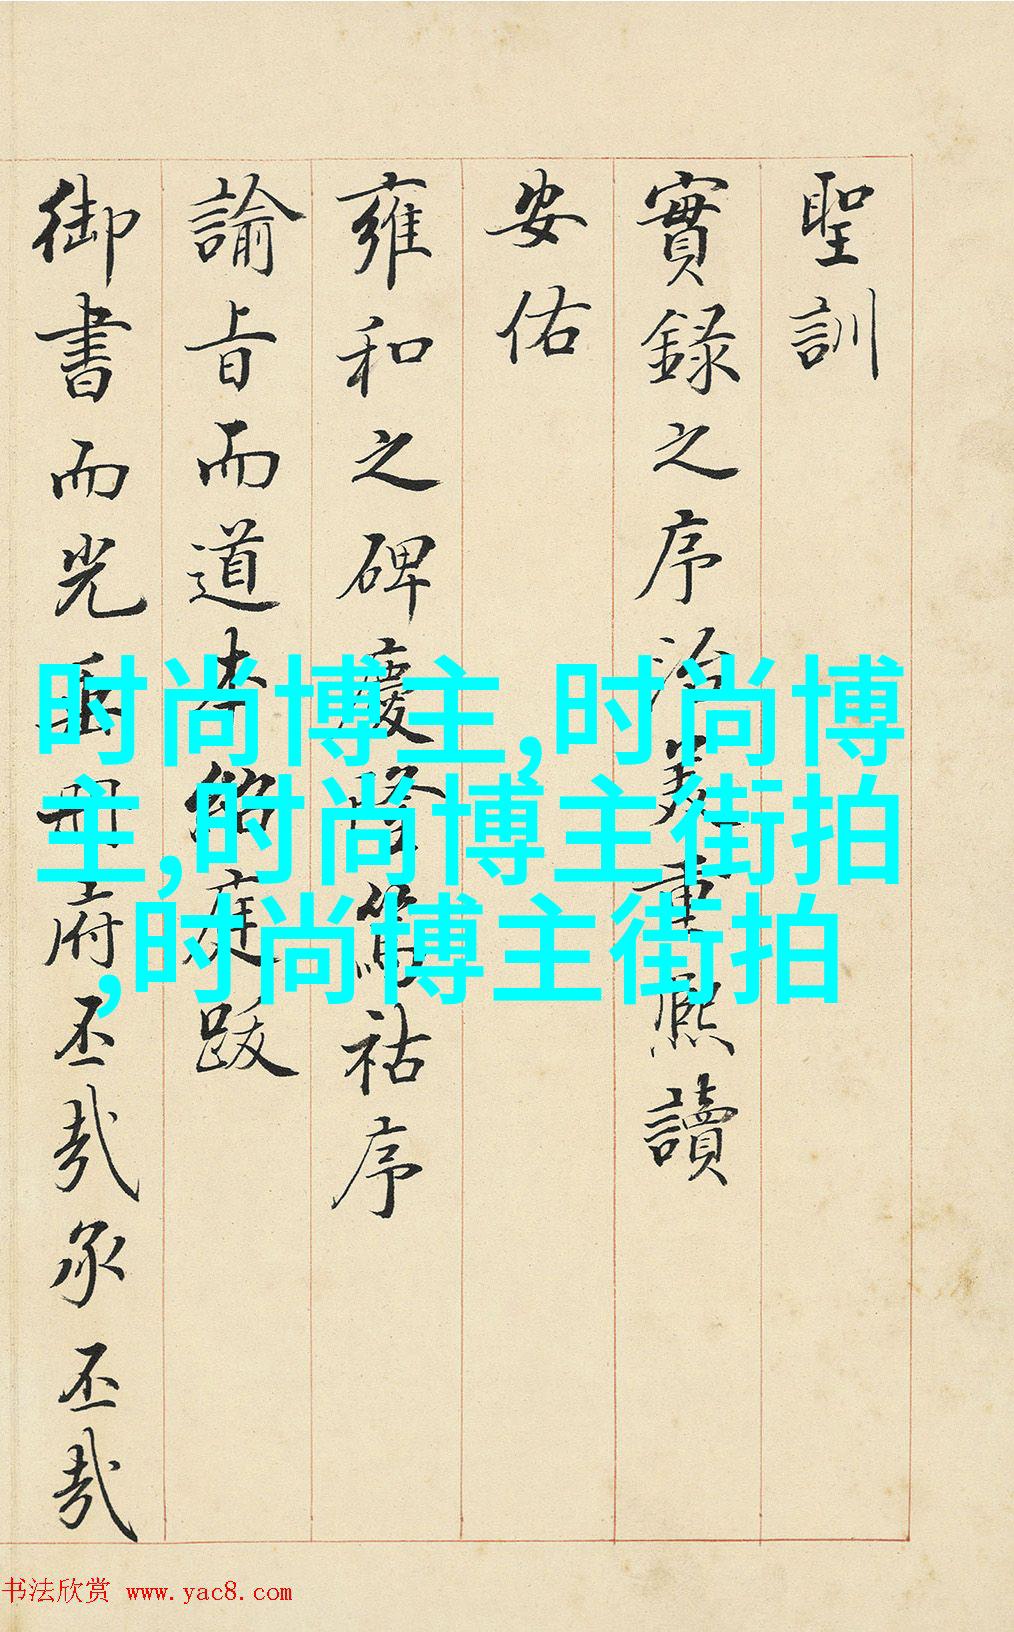 聖訓
實錄之序治美重熙讀
安佑
雍和之碑慶隆篤祜序
諭旨而道本紹庭跋
御書而光垂冊府丕哉承丕哉
时尚博主,时尚博
主,时尚博主街拍
,时尚博主街拍
书法欣赏 www.yac8.com